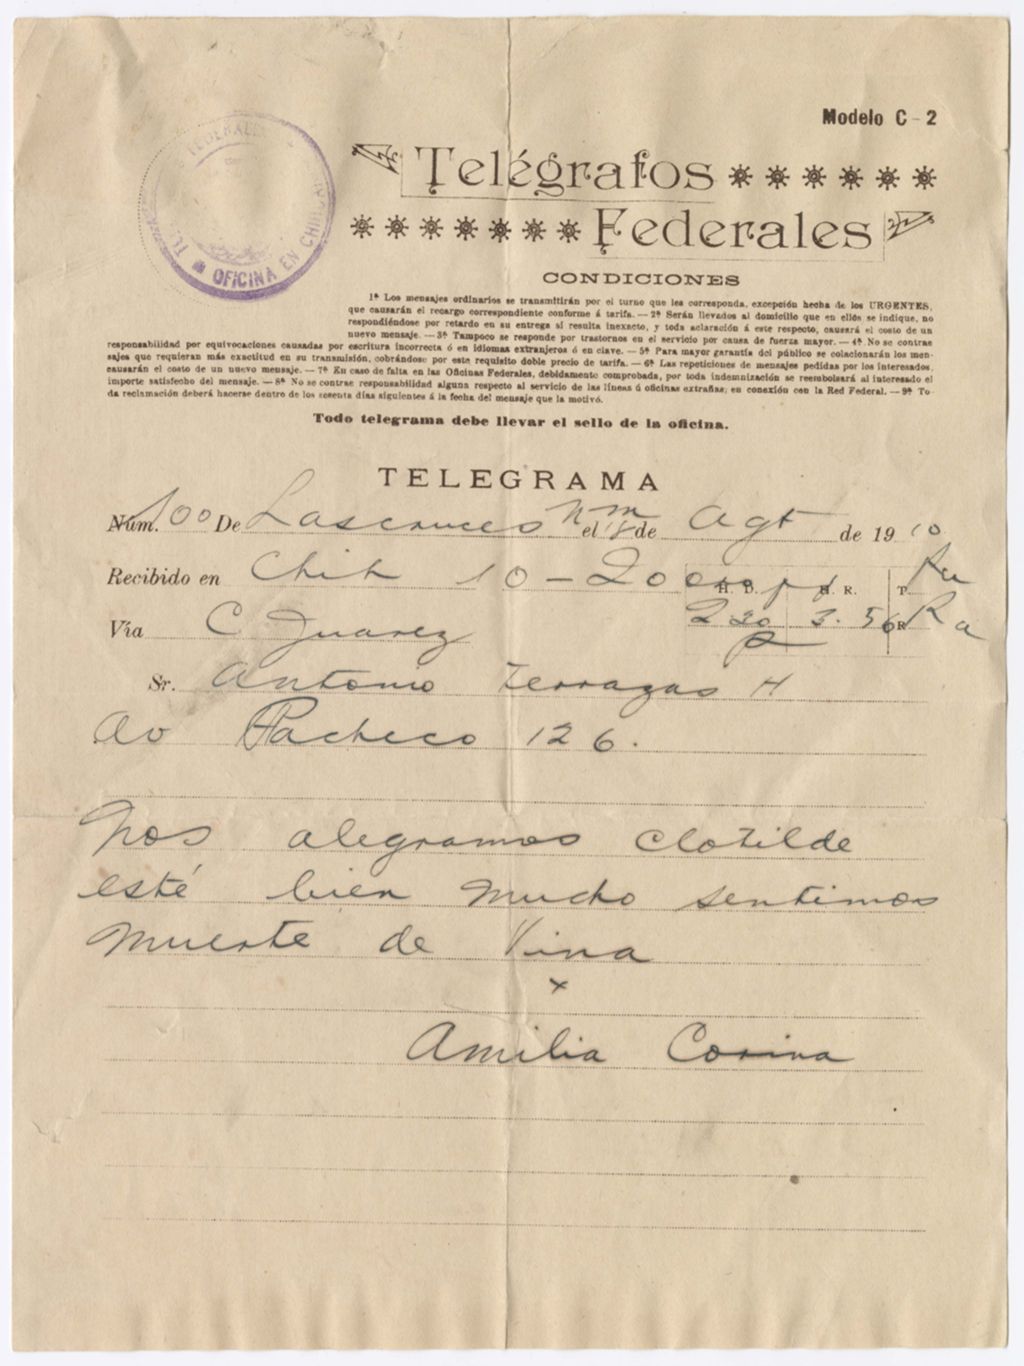 Modelo C-2
Telégrafos
Federales
TELEGRAFOS FEDERALES OFICINA EN CHIHUAHUA
CONDICIONES
1ª Los mensajes ordinarios se transmitirán por el turno que les corresponda, excepción hecha de los URGENTES,
que causarán el recargo correspondiente conforme á tarifa. — 2ª Serán llevados al domicilio que en ellos se indique, no
respondiéndose por retardo en su entrega si resulta inexacto, y toda aclaración á este respecto, causará el costo de un
nuevo mensaje. — 3ª Tampoco se responde por trastornos en el servicio por causa de fuerza mayor. — 4ª No se contrae
responsabilidad por equivocaciones causadas por escritura incorrecta ó en idiomas extranjeros ó en clave. — 5ª Para mayor garantía del público se colacionarán los men-
sajes que requieran más exactitud en su transmisión, cobrándose por este requisito doble precio de tarifa. — 6ª Las repeticiones de mensajes pedidas por los interesados,
causarán el costo de un nuevo mensaje. — 7ª En caso de falta en las Oficinas Federales, debidamente comprobada, por toda indemnización se reembolsará al interesado el
importe satisfecho del mensaje. — 8ª No se contrae responsabilidad alguna respecto al servicio de las líneas ú oficinas extrañas, en conexión con la Red Federal. — 9ª To-
da reclamación deberá hacerse dentro de los sesenta días siguientes á la fecha del mensaje que la motivó.
Todo telegrama debe llevar el sello de la oficina.
TELEGRAMA
Núm. 100 De Lascruces Nm el 18 de Agt de 1910
Recibido en Chih 10-20 H. D. H. R. T.
Vía C Juarez 2 30 p 3.56 R Ra
Sr. Antonio Terrazas H
Av Pacheco 126.
Nos alegramos Clotilde
esté bien mucho sentimos
muerte de Vina
x
Amilia Corina